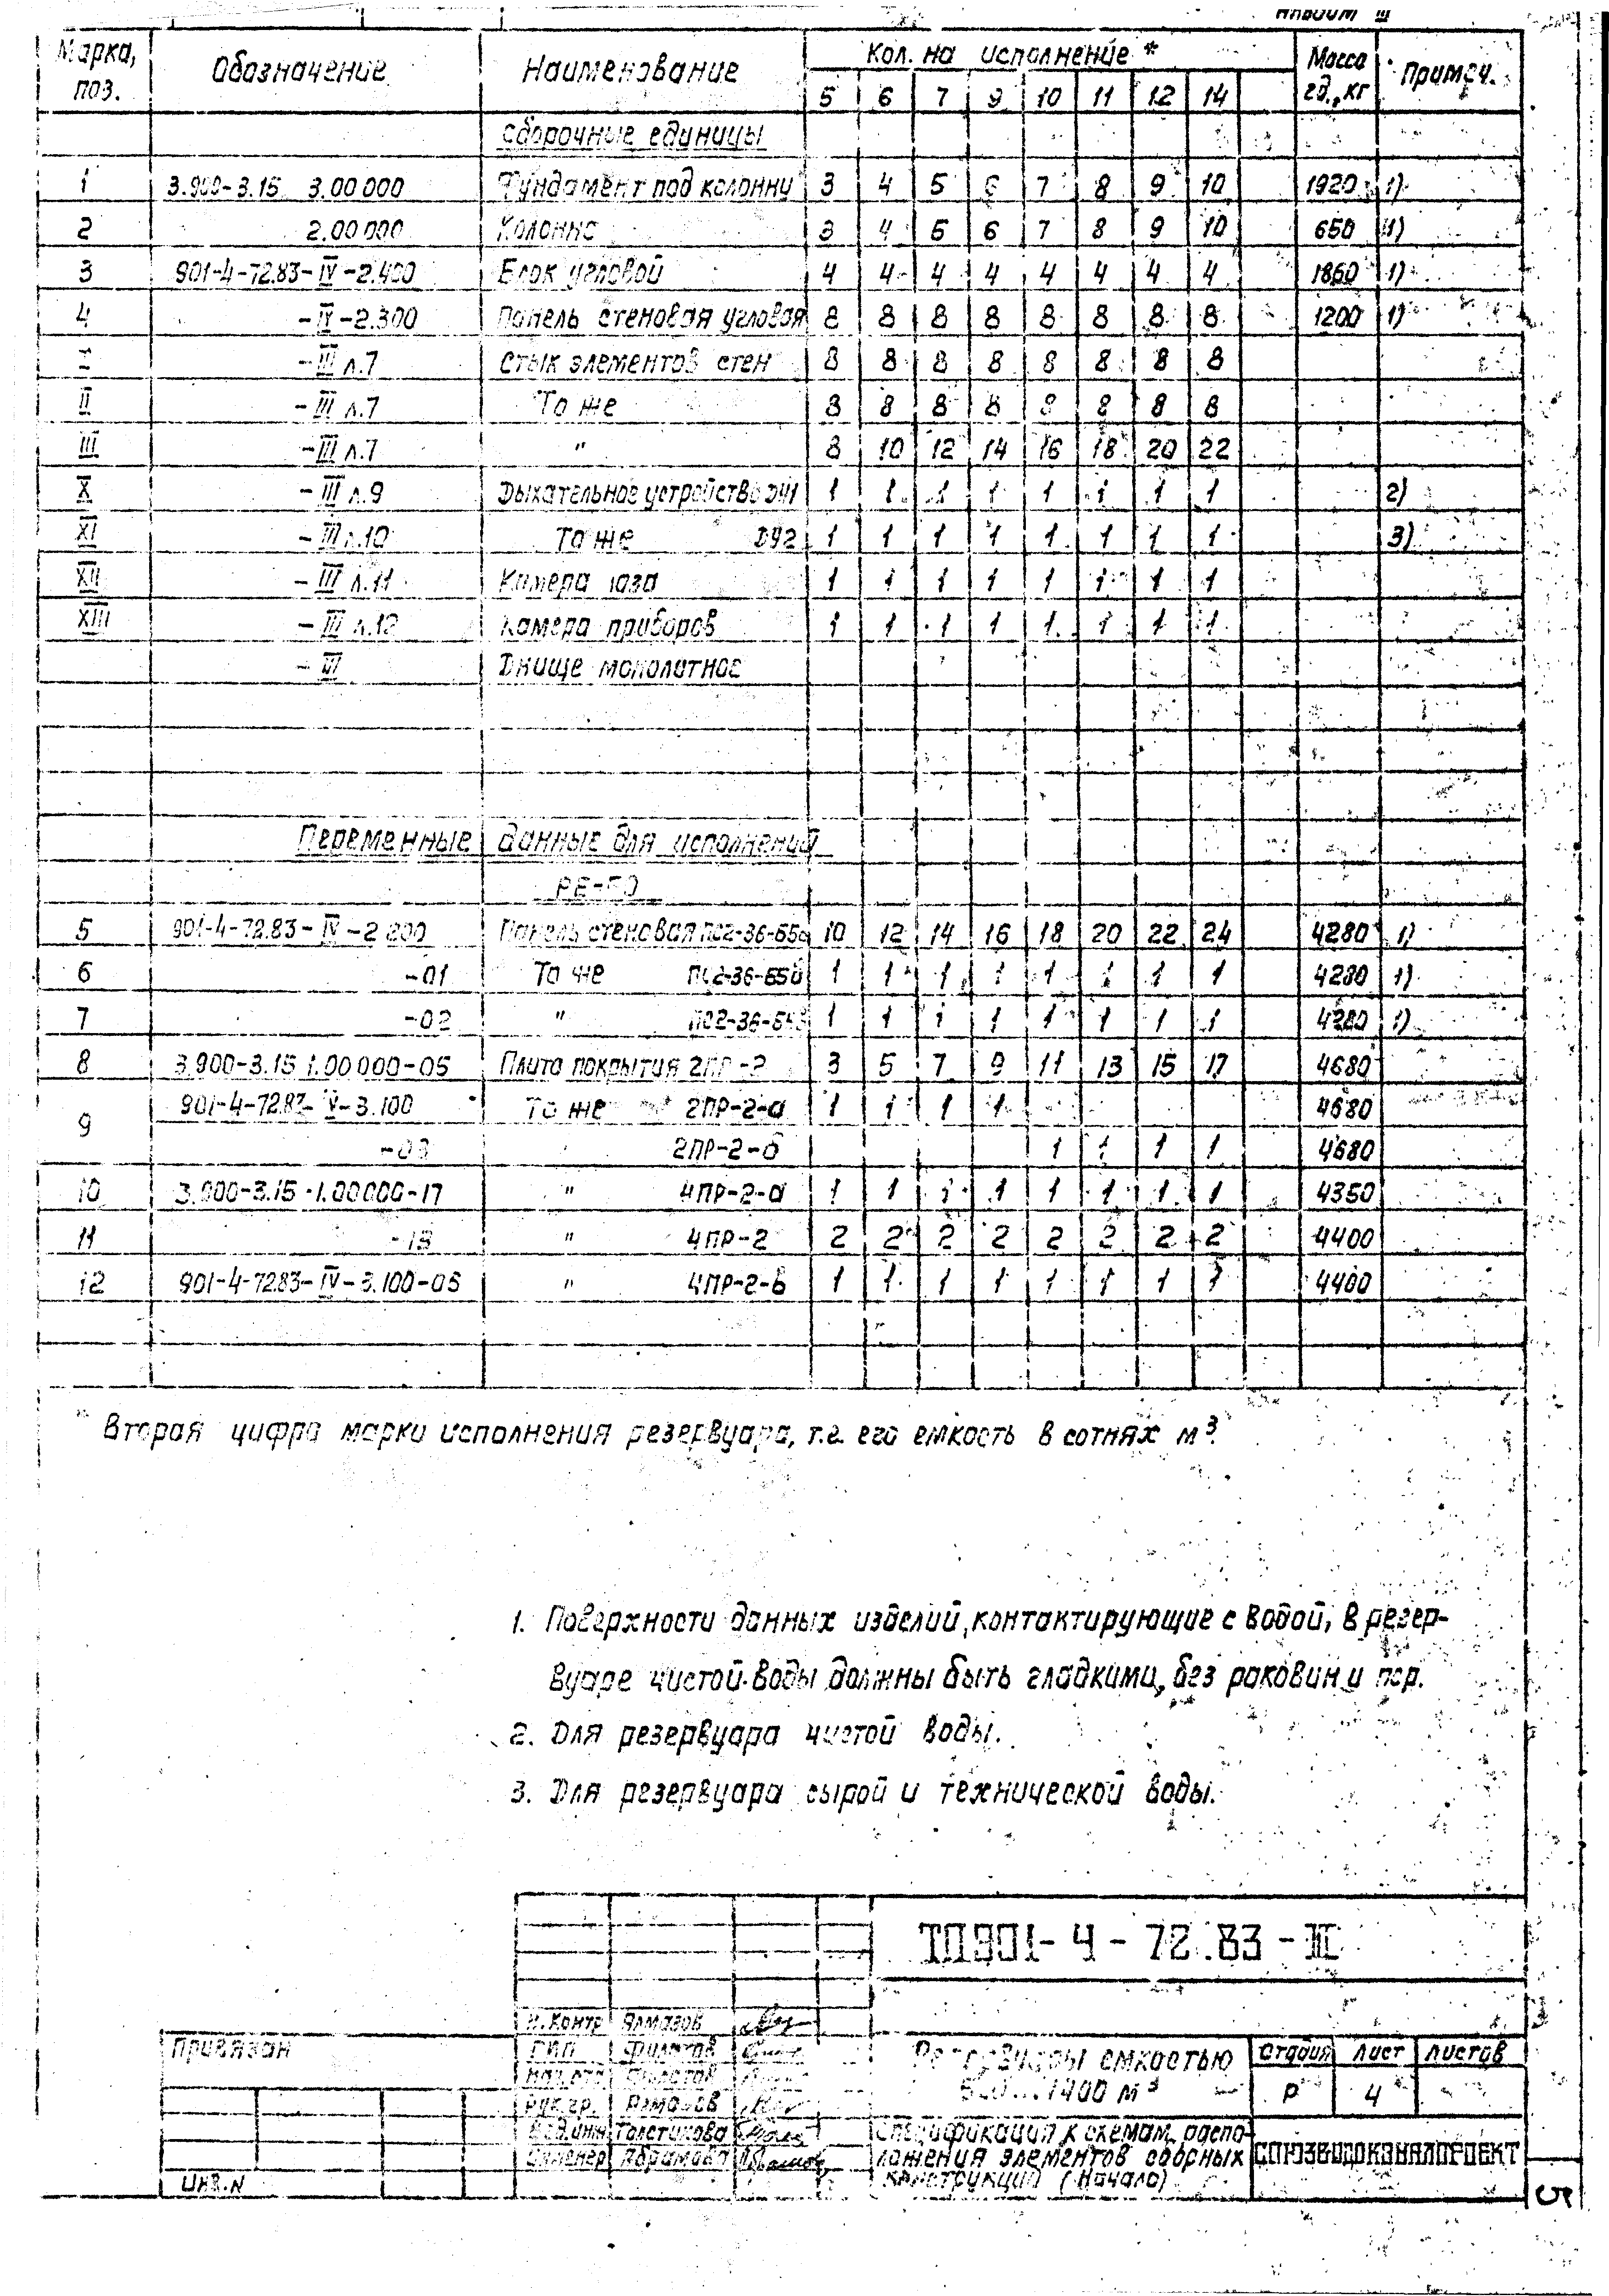 Альбом III
Марка, поз. Обозначение Наименование Кол. на исполнение * Масса ед., кг Примеч.
5 6 7 9 10 11 12 14
Сборочные единицы
1 3.900-3.15 3.00 000 Фундамент под колонну 3 4 5 6 7 8 9 10 1920 1)
2 2.00 000 Колонна 3 4 5 6 7 8 9 10 650 1)
3 901-4-72.83-IV-2.400 Блок угловой 4 4 4 4 4 4 4 4 1860 1)
4 -IV-2.300 Панель стеновая угловая 8 8 8 8 8 8 8 8 1200 1)
I -III л.7 Стык элементов стен 8 8 8 8 8 8 8 8
II -III л.7 То же 8 8 8 8 8 8 8 8
III -III л.7 " 8 10 12 14 16 18 20 22
X -III л.9 Дыхательное устройство ДУ1 1 1 1 1 1 1 1 1 2)
XI -III л.10 То же ДУ2 1 1 1 1 1 1 1 1 3)
XII -III л.11 Камера лаза 1 1 1 1 1 1 1 1
XIII -III л.12 Камера приборов 1 1 1 1 1 1 1 1
-III Днище монолитное
Переменные данные для исполнений
РЕ-50
5 901-4-72.83-IV-2.200 Панель стеновая ПС2-36-Б5а 10 12 14 16 18 20 22 24 4280 1)
6 -01 То же ПС2-36-Б5б 1 1 1 1 1 1 1 1 4280 1)
7 -02 " 1 1 1 1 1 1 1 1 4280 1)
8 3.900-3.15 1.00 000-05 Плита покрытия 2ПР-2 3 5 7 9 11 13 15 17 4680
9 901-4-72.83-IV-3.100 То же 2ПР-2-а 1 1 1 1 4680
-03 2ПР-2-б 1 1 1 1 4680
10 3.900-3.15 1.00000-17 " 4ПР-2-а 1 1 1 1 1 1 1 1 4350
11 " 4ПР-2 2 2 2 2 2 2 2 2 4400
12 901-4-72.83-IV-3.100-05 " 4ПР-2-в 1 1 1 1 1 1 1 1 4400
* Вторая цифра марки исполнения резервуара, т.е. его емкость в сотнях м³.
1. Поверхности данных изделий, контактирующие с водой, в резер-
вуаре чистой воды должны быть гладкими, без раковин и пор.
2. Для резервуара чистой воды.
3. Для резервуара сырой и технической воды.
ТП901-4-72.83-III
Н.контр Алмазов
ГИП Филатов
Нач.отд Филатов
Рук.гр. Алмазов
Вед.инж Толстикова
Инженер Абрамова
Привязан
Инв.N
Резервуары емкостью
500...1400 м³
Стадия Лист Листов
Р 4
Спецификация к схемам распо-
ложения элементов сборных
конструкций (Начало)
СОЮЗВОДОКАНАЛПРОЕКТ
5